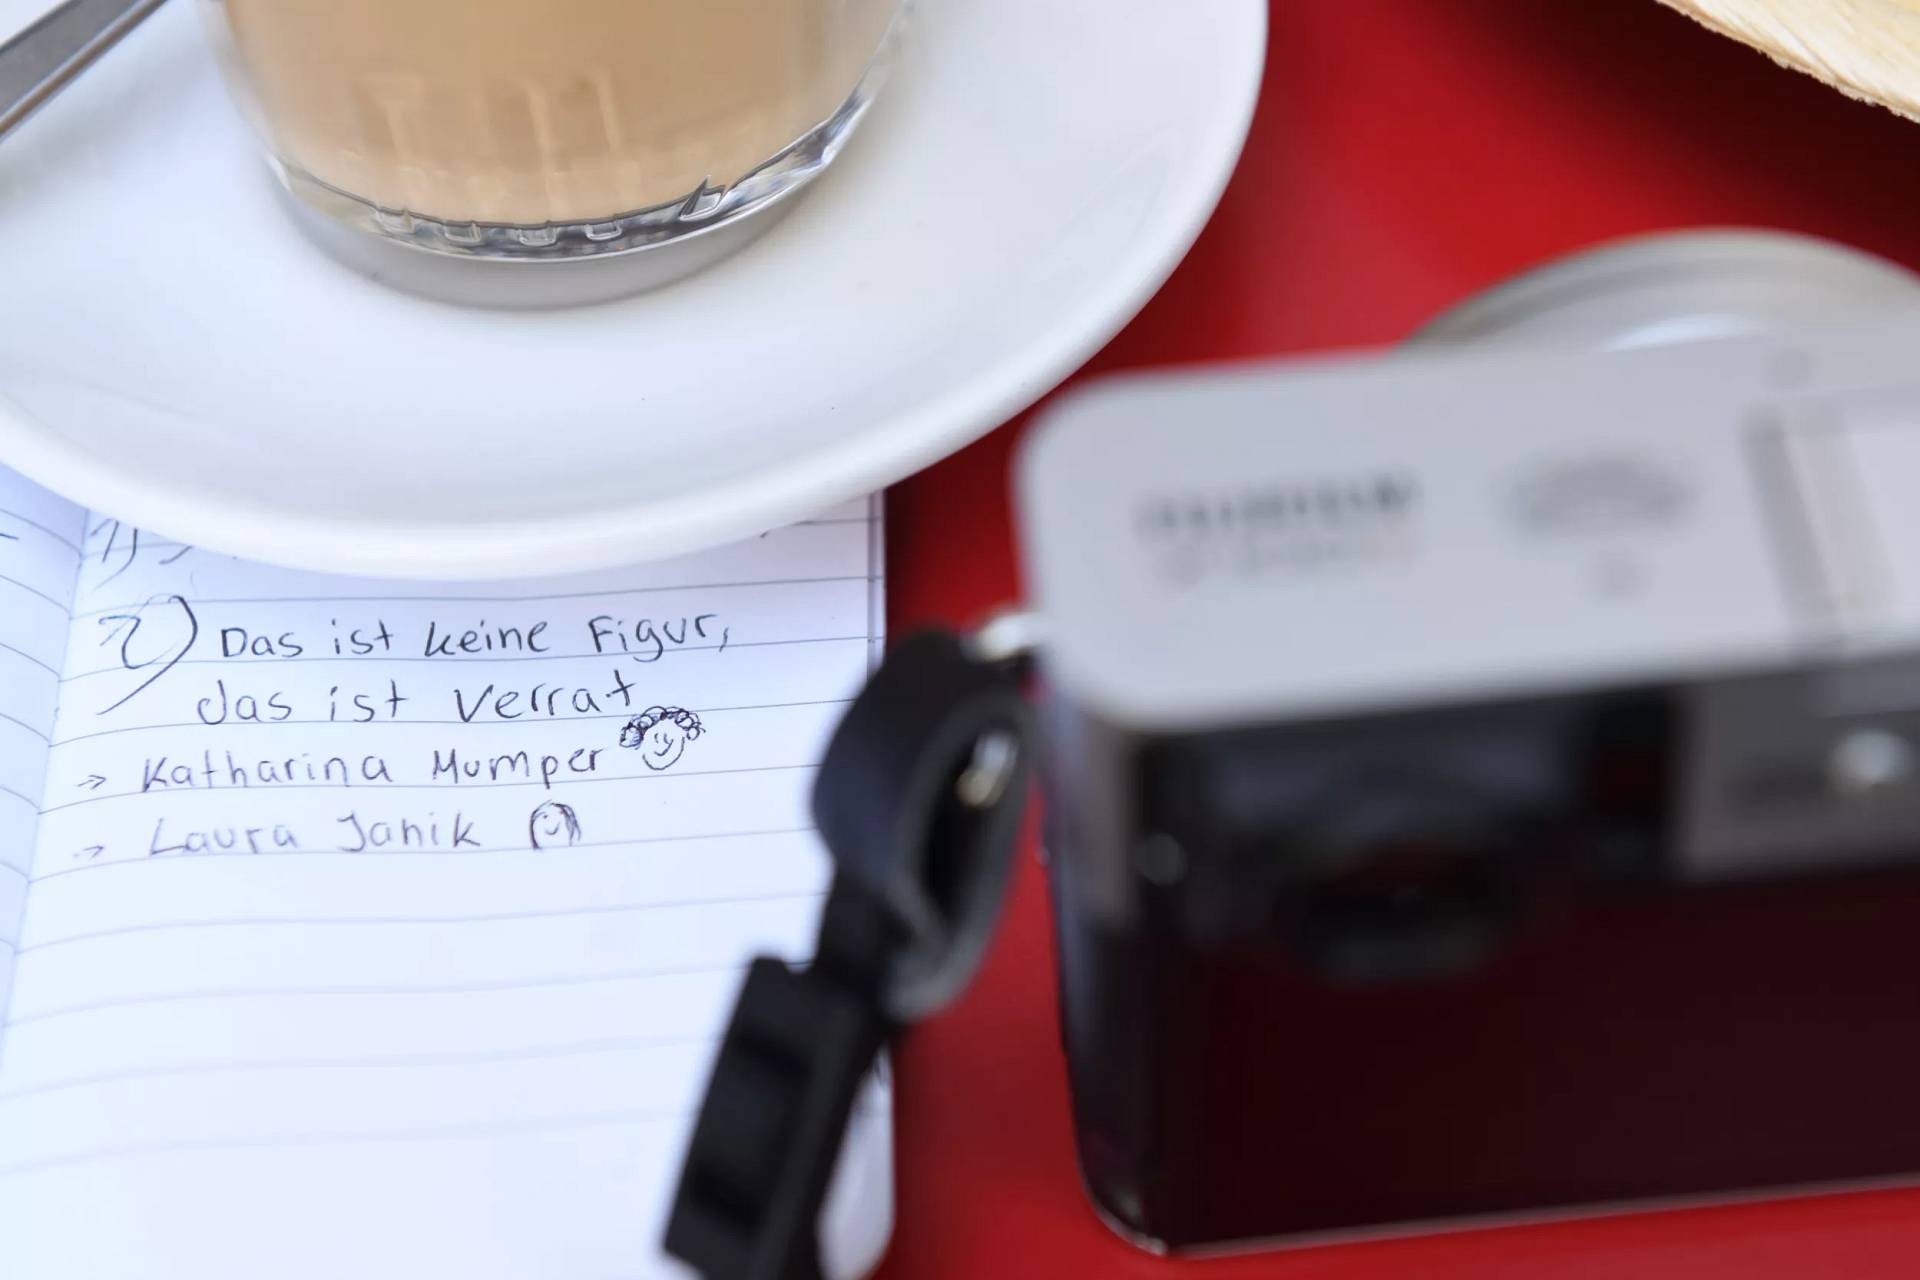 1)
2) Das ist keine Figur,
das ist Verrat
→ Katharina Mumper
→ Laura Janik